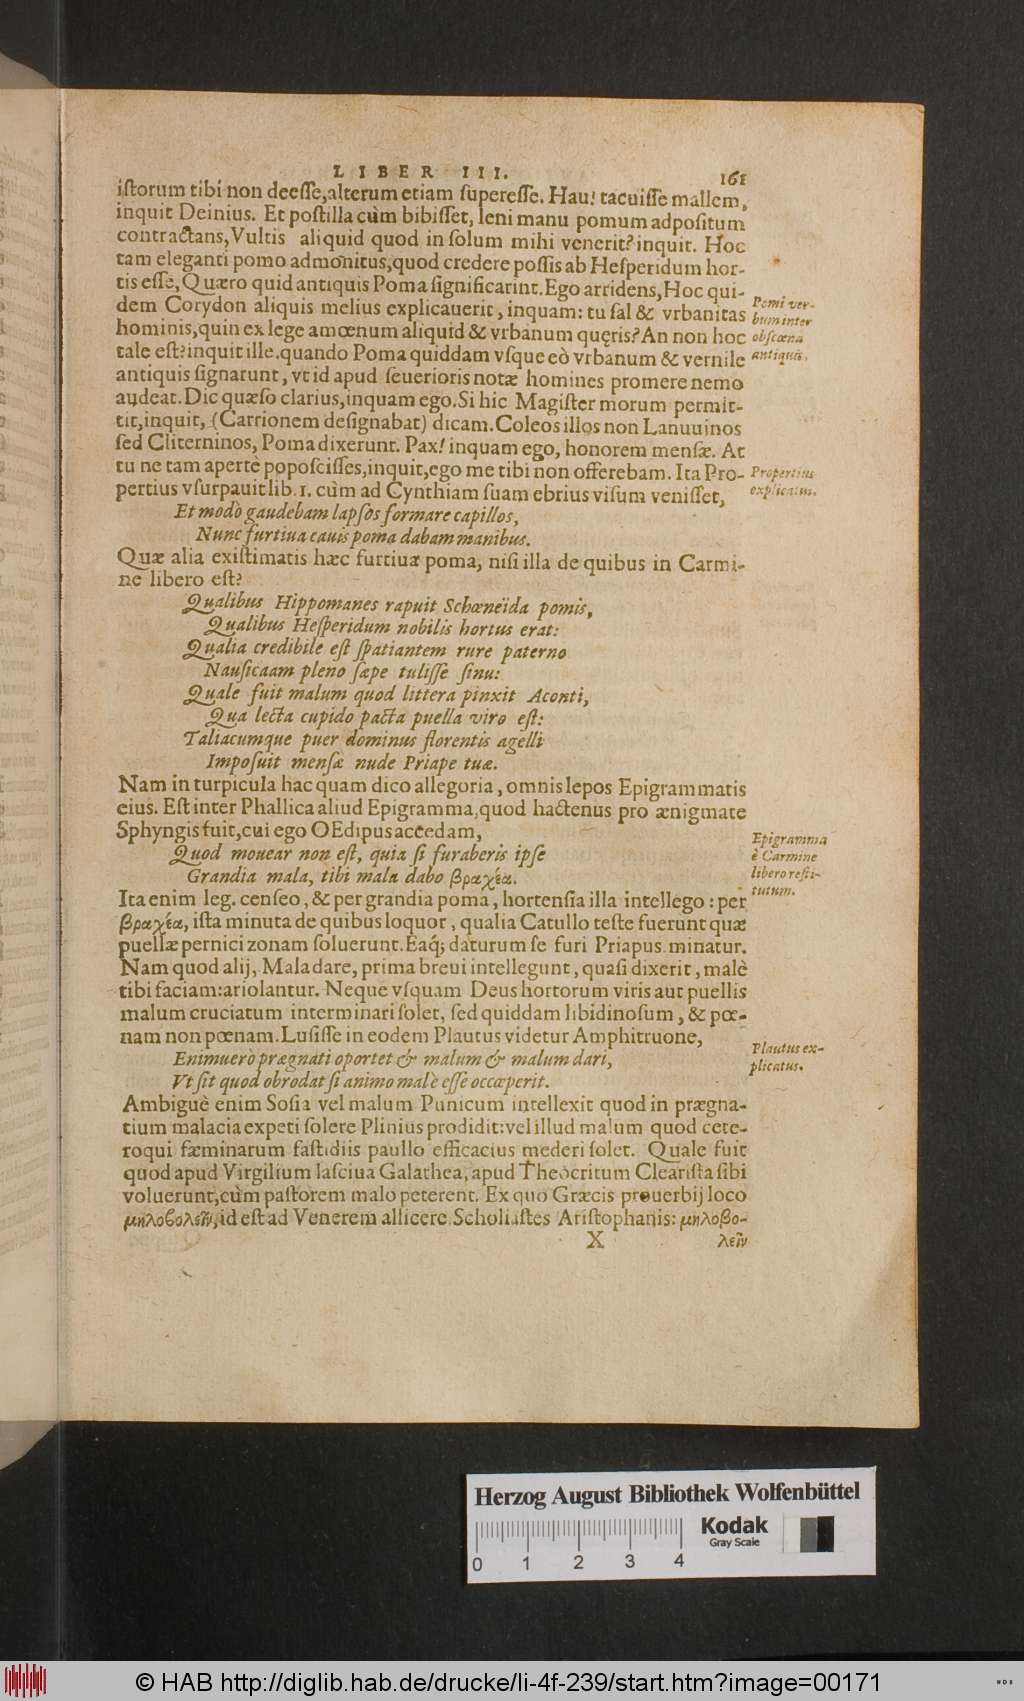 LIBER III. 161
iſtorum tibi non deeſſe, alterum etiam ſupereſſe. Hau! tacuiſſe mallem,
inquit Deinius. Et poſtilla cùm bibiſſet, leni manu pomum adpoſitum
contractans, Vultis aliquid quod in ſolum mihi venerit? inquit. Hoc
tam eleganti pomo admonitus, quod credere poſſis ab Heſperidum hor-
tis eſſe, Quæro quid antiquis Poma ſignificarint. Ego arridens, Hoc qui-
dem Corydon aliquis melius explicauerit, inquam: tu ſal & vrbanitas
Pomi ver-
bum inter
obſcœna
antiquis.
hominis, quin ex lege amœnum aliquid & vrbanum quęris? An non hoc
tale eſt? inquit ille. quando Poma quiddam vſque eò vrbanum & vernile
antiquis ſignarunt, vt id apud ſeuerioris notæ homines promere nemo
audeat. Dic quæſo clarius, inquam ego. Si hic Magiſter morum permit-
tit, inquit, (Carrionem deſignabat) dicam. Coleos illos non Lanuuinos
ſed Cliterninos, Poma dixerunt. Pax! inquam ego, honorem menſæ. At
tu ne tam apertè popoſciſſes, inquit, ego me tibi non offerebam. Ita Pro-
Propertius
explicatus.
pertius vſurpauit lib. 1. cùm ad Cynthiam ſuam ebrius viſum veniſſet,
Et modò gaudebam lapſos formare capillos,
Nunc furtiua cauis poma dabam manibus.
Quæ alia exiſtimatis hæc furtiua poma, niſi illa de quibus in Carmi-
ne libero eſt?
Qualibus Hippomanes rapuit Schœneïda pomis,
Qualibus Heſperidum nobilis hortus erat:
Qualia credibile eſt ſpatiantem rure paterno
Nauſicaam pleno ſæpe tuliſſe ſinu:
Quale fuit malum quod littera pinxit Aconti,
Qua lecta cupido pacta puella viro eſt:
Taliacumque puer dominus florentis agelli
Impoſuit menſæ nude Priape tuæ.
Nam in turpicula hac quam dico allegoria, omnis lepos Epigrammatis
eius. Eſt inter Phallica aliud Epigramma, quod hactenus pro ænigmate
Sphyngis fuit, cui ego OEdipus accedam,
Epigramma
è Carmine
libero reſti-
tutum.
Quod mouear non eſt, quia ſi furaberis ipſe
Grandia mala, tibi mala dabo βραχέα.
Ita enim leg. cenſeo, & per grandia poma, hortenſia illa intellego: per
βραχέα, iſta minuta de quibus loquor, qualia Catullo teſte fuerunt quæ
puellæ pernici zonam ſoluerunt. Eaq́; daturum ſe furi Priapus minatur.
Nam quod alij, Mala dare, prima breui intellegunt, quaſi dixerit, malè
tibi faciam: ariolantur. Neque vſquam Deus hortorum viris aut puellis
malum cruciatum interminari ſolet, ſed quiddam libidinoſum, & pœ-
nam non pœnam. Luſiſſe in eodem Plautus videtur Amphitruone,
Plautus ex-
plicatus.
Enimuero prægnati oportet & malum & malum dari,
Vt ſit quod obrodat ſi animo malè eſſe occœperit.
Ambiguè enim Soſia vel malum Punicum intellexit quod in prægna-
tium malacia expeti ſolere Plinius prodidit: vel illud malum quod cete-
roqui fæminarum faſtidiis paullo efficacius mederi ſolet. Quale fuit
quod apud Virgilium laſciua Galathea, apud Theocritum Cleariſta ſibi
voluerunt, cùm paſtorem malo peterent. Ex quo Græcis prouerbij loco
μηλοβολεῖν, id eſt ad Venerem allicere. Scholiaſtes Ariſtophanis: μηλοβο-
X λεῖν
Herzog August Bibliothek Wolfenbüttel
Kodak
Gray Scale
0 1 2 3 4
© HAB http://diglib.hab.de/drucke/li-4f-239/start.htm?image=00171